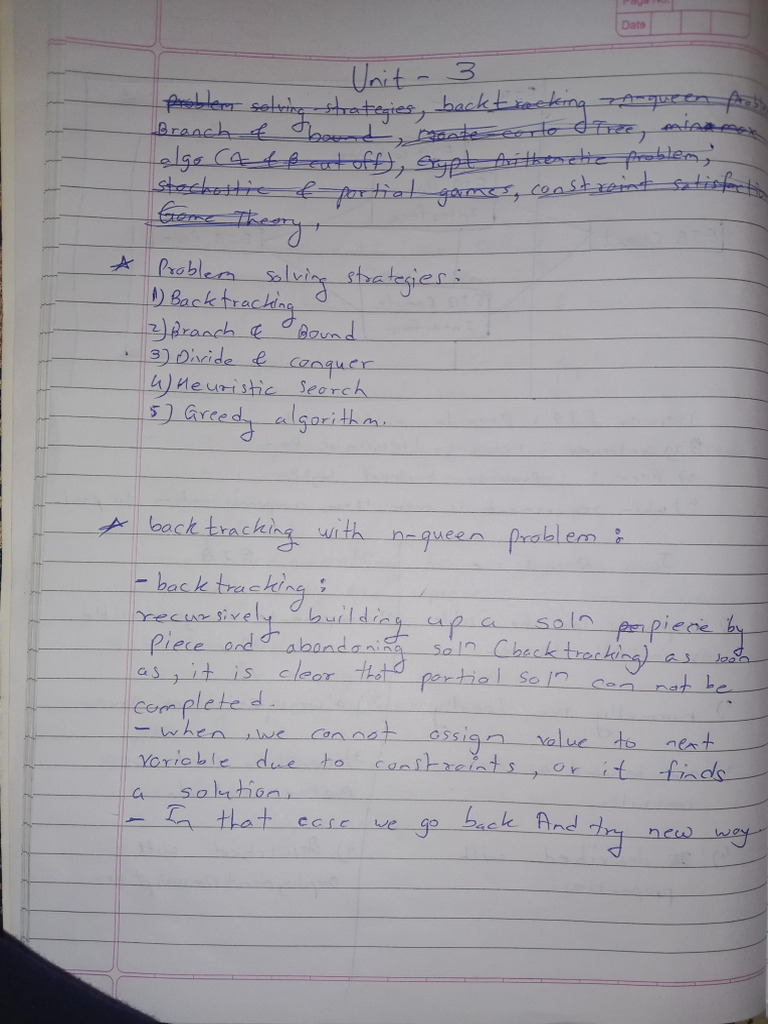 Page No.
Date
Unit - 3
problem solving strategies, backtracking n-queen Prob
Branch & bound, Monte carlo Tree, minmax
algo (α & β cut off), Crypt Arithemetic problem,
stochastic & partial games, constraint satisfactio
Game Theory,
* Problem solving strategies:
1) Backtracking
2) Branch & Bound
3) Divide & conquer
4) Heuristic search
5) Greedy algorithm.
* backtracking with n-queen problem :
- backtracking :
recursively building up a soln piecie by
Piece and abandoning soln (backtracking) as soon
as, it is clear that partial soln can not be
completed.
- when, we cannot assign value to next
variable due to constraints, or it finds
a solution.
- In that case we go back And try new way